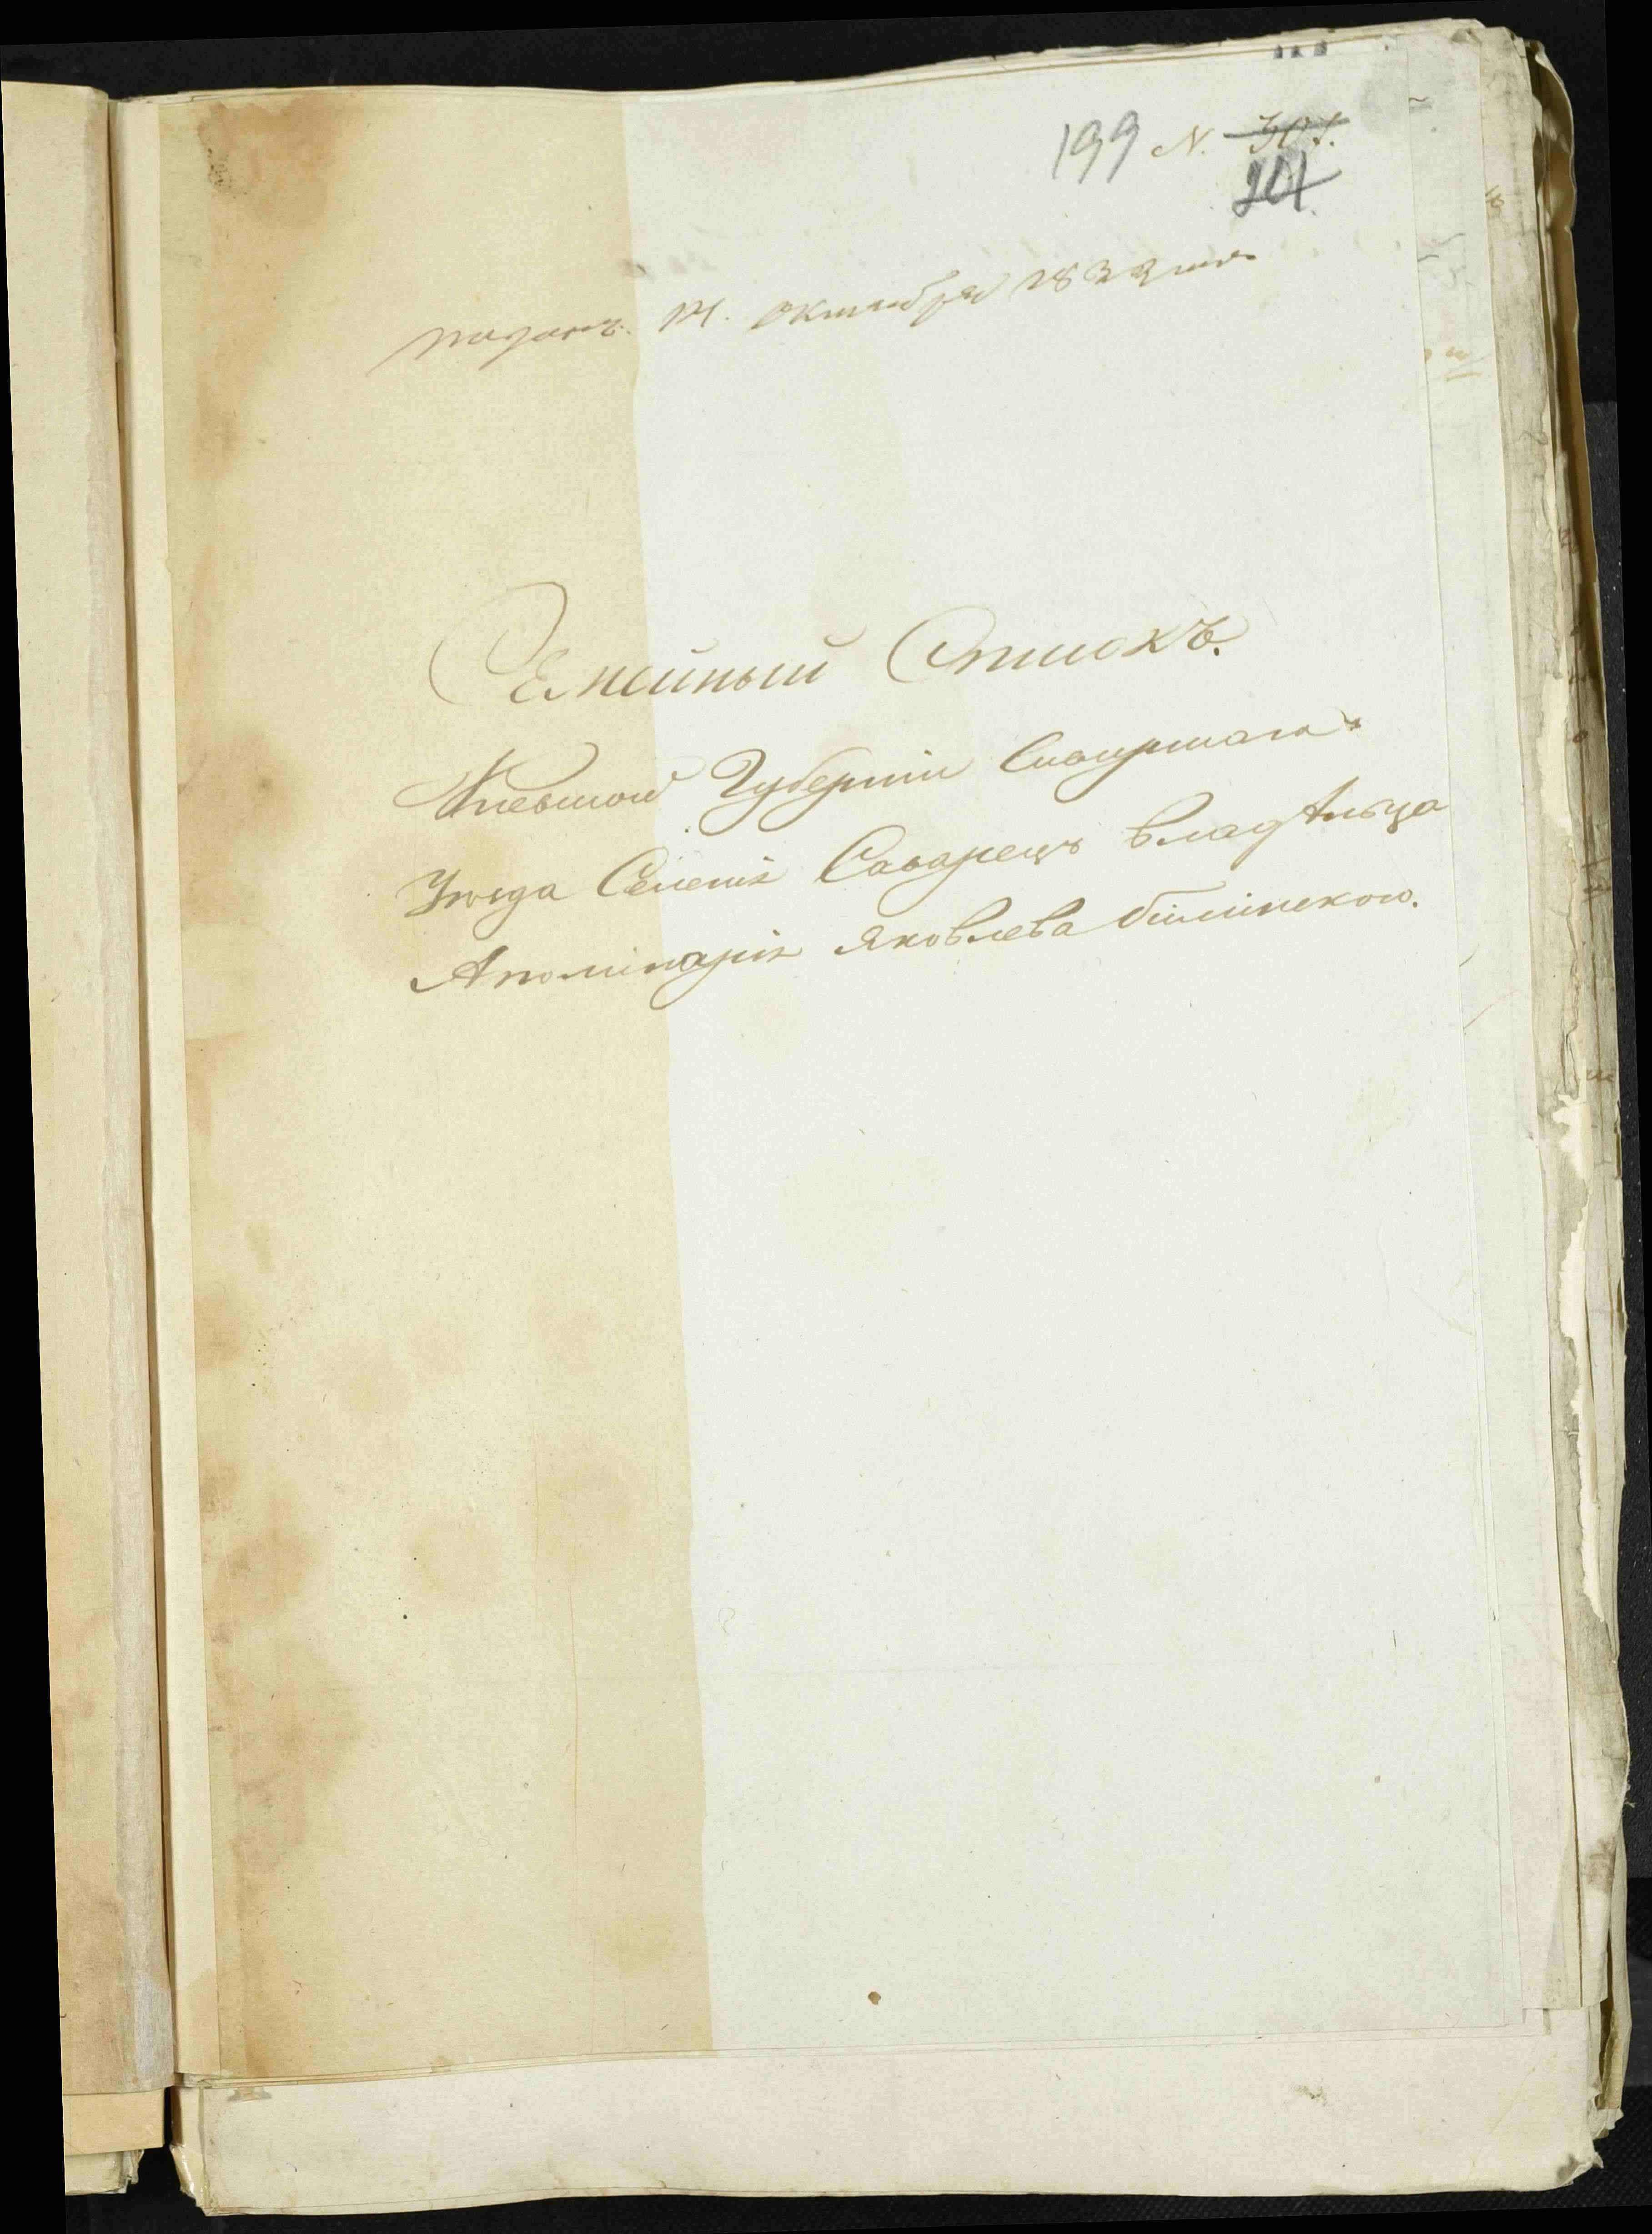 199 N. 301.
201.
поданъ. 14. октября 1833 года
Семейный Списокъ.
Киевской Губернии Сквирскаго
Уезда Селения Саварецъ владѣльца
Аполинария Яковлева билинского.